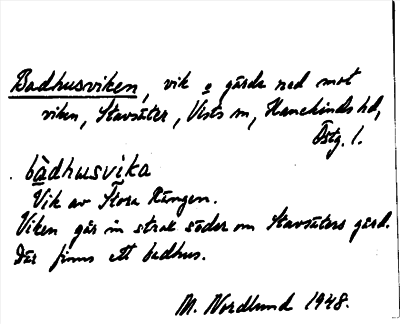 Badhusviken, vik o gärde ned mot
viken, Stavsäter, Vists sn, Hanekinds hd,
Östg. l.
bàdhusvika
Vik av Stora Rängen.
Viken går in strax söder om Stavsäters gård.
Där finns ett badhus.
M. Nordlund 1948.